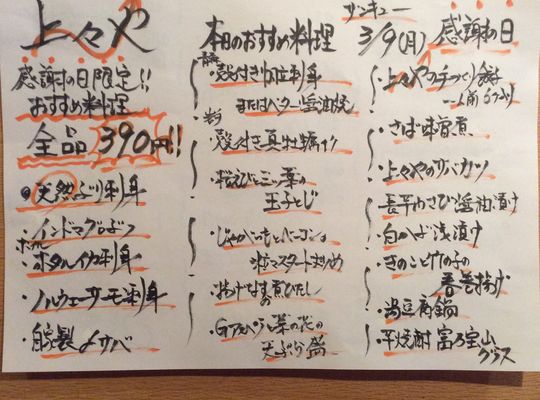 上々や
感謝の日限定!!
おすすめ料理
全品390円!!
・天然ぶり刺身
・インドマグロぶつ
ボイル
・ホタルイカ刺身
・ノルウェーサーモン刺身
・自家製〆サバ
本日のおすすめ料理
・殻付き帆立刺身
またはバター醤油焼
・殻付き真牡蠣
・桜えびと三ツ葉の
玉子とじ
・じゃがいもとベーコンの
粒マスタート炒め
・揚げなすの煮びたし
・Gアスパラと菜の花の
天ぷら盛
サンキュー
3/9(月) 感謝の日
・上々やの手づくり餃子
一人前6つぶり
・さば味噌煮
・上々やのサバカツ
・長芋わさび醤油漬け
・白かぶ浅漬け
・きのこと竹の子の
春巻揚げ
・湯豆腐鍋
・芋焼酎 富乃宝山
グラス